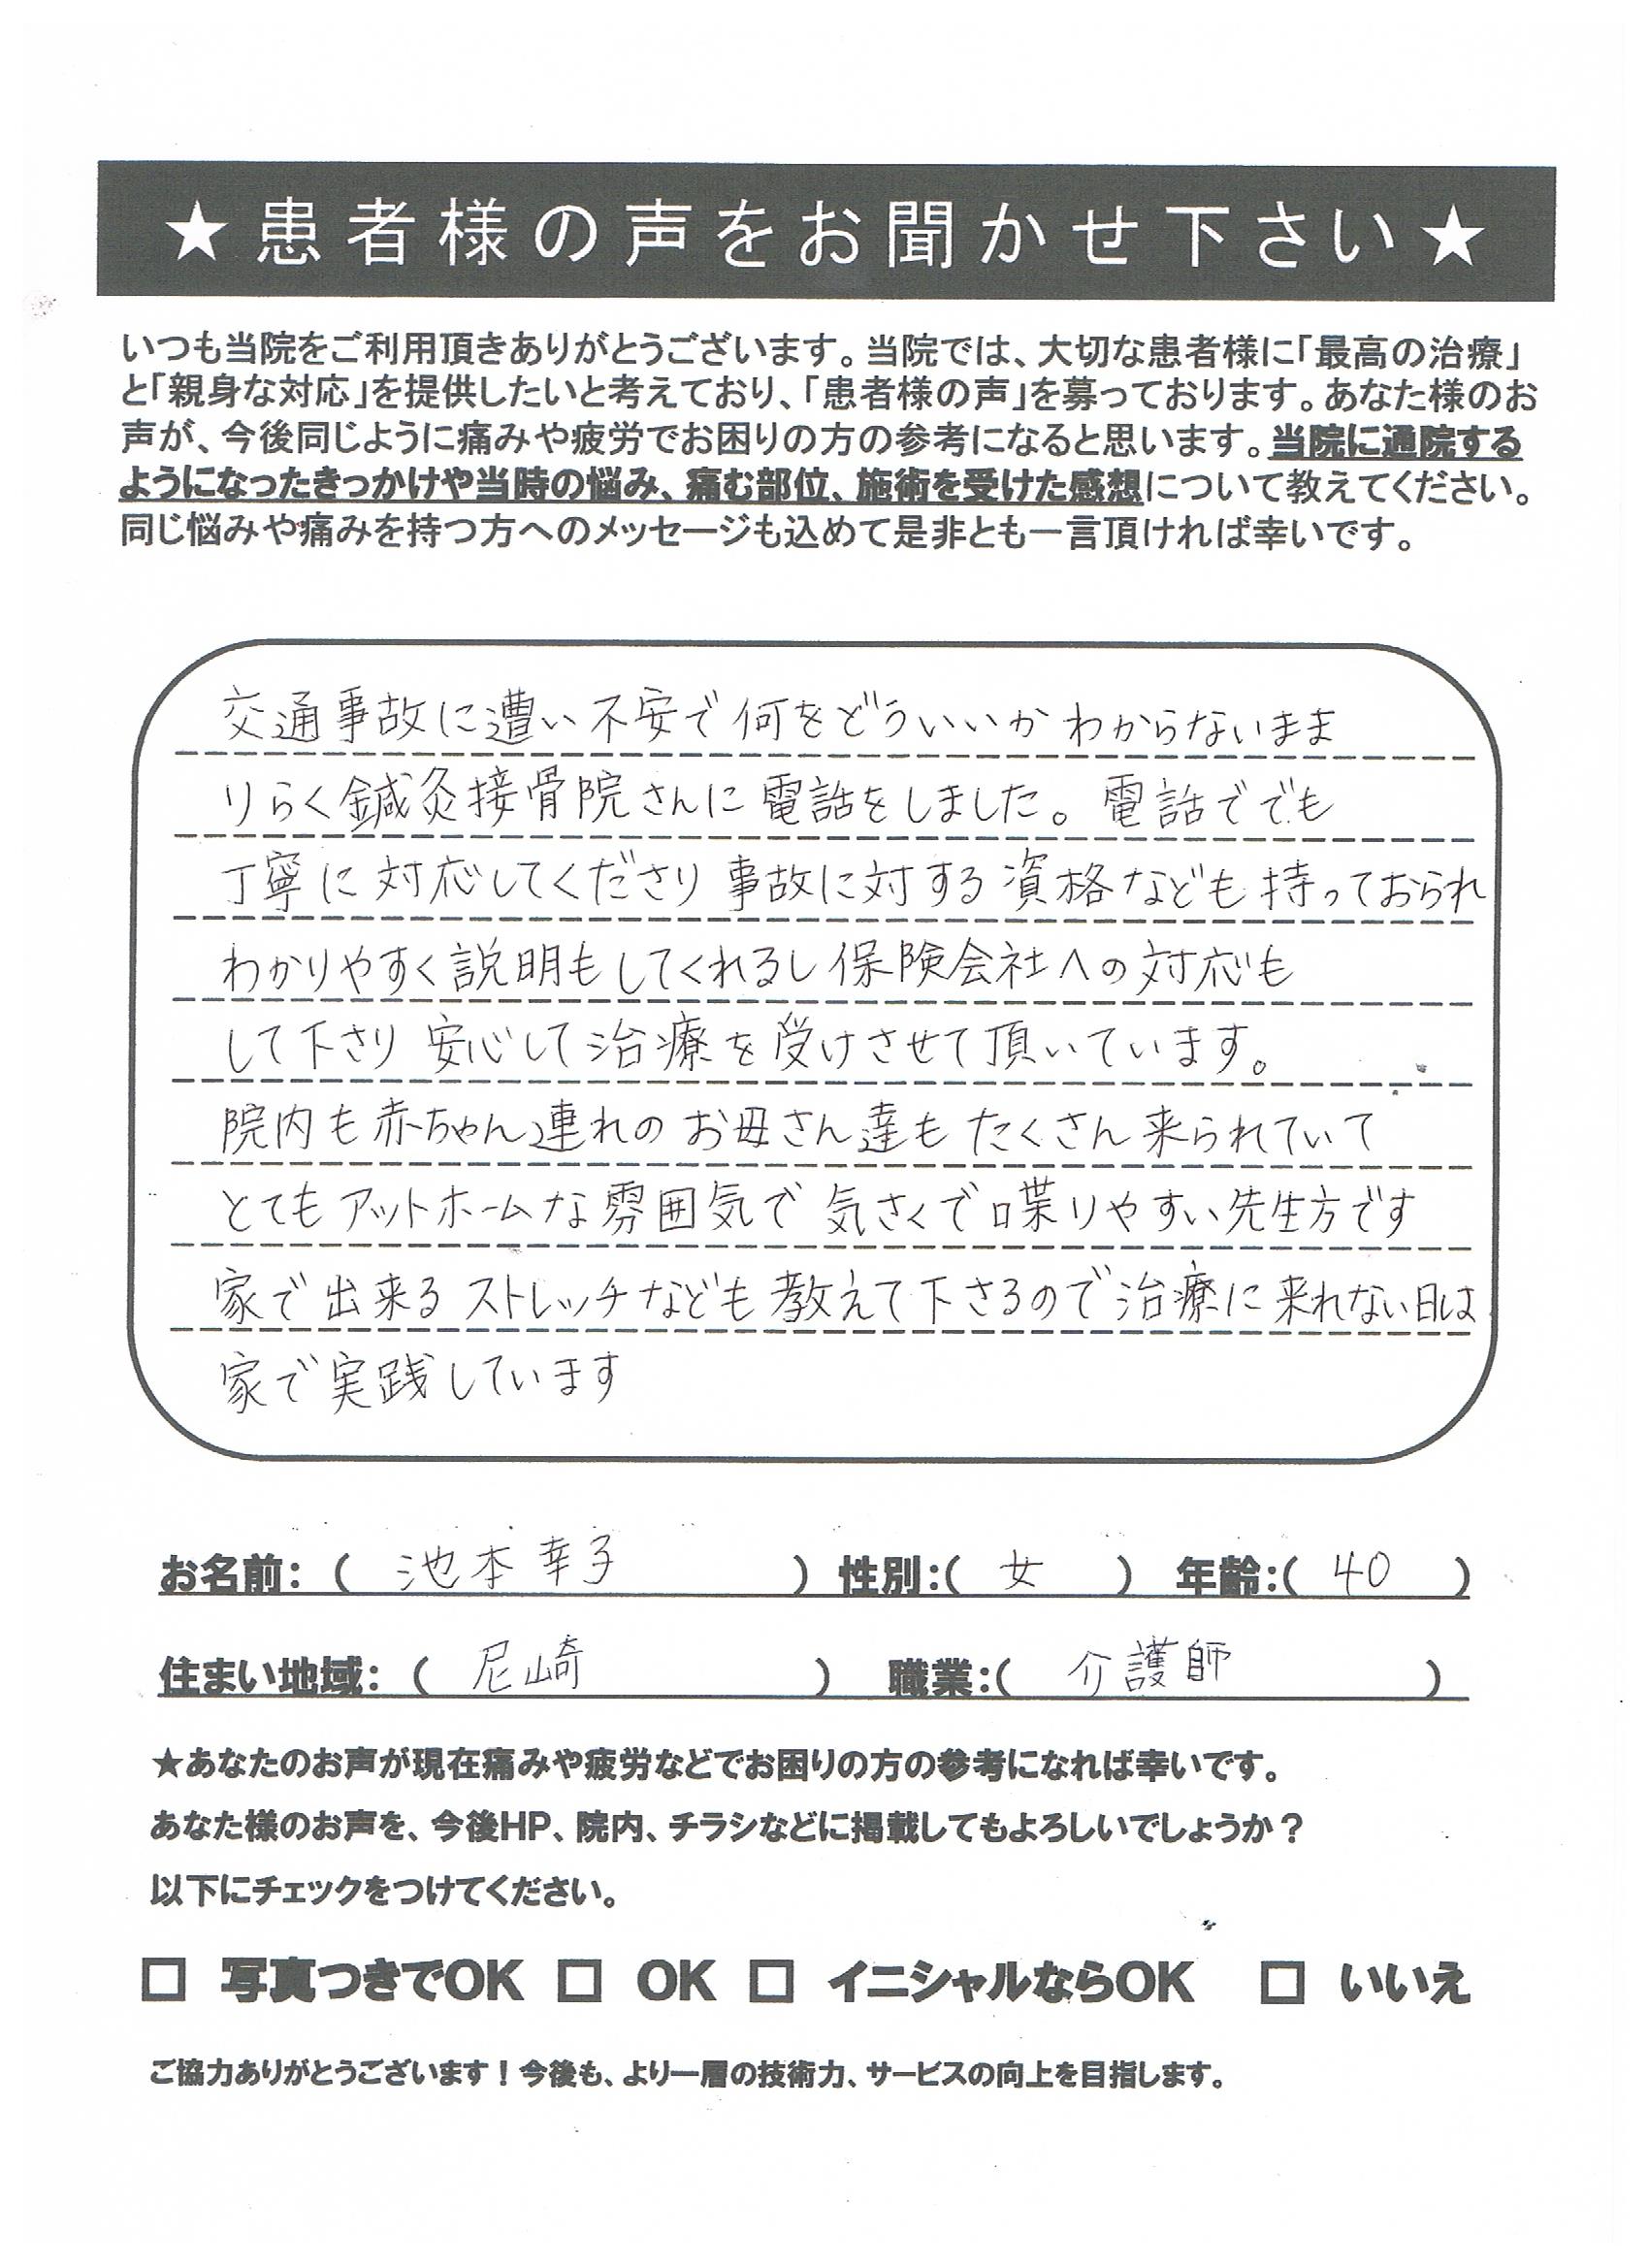 ★患者様の声をお聞かせ下さい★
いつも当院をご利用頂きありがとうございます。当院では、大切な患者様に「最高の治療」
と「親身な対応」を提供したいと考えており、「患者様の声」を募っております。あなた様のお
声が、今後同じように痛みや疲労でお困りの方の参考になると思います。当院に通院する
ようになったきっかけや当時の悩み、痛む部位、施術を受けた感想について教えてください。
同じ悩みや痛みを持つ方へのメッセージも込めて是非とも一言頂ければ幸いです。
交通事故に遭い不安で何をどういいかわからないまま
りらく鍼灸接骨院さんに電話をしました。電話ででも
丁寧に対応してくださり事故に対する資格なども持っておられ
わかりやすく説明もしてくれるし保険会社への対応も
して下さり安心して治療を受けさせて頂いています。
院内も赤ちゃん連れのお母さん達もたくさん来られていて
とてもアットホームな雰囲気で気さくで喋りやすい先生方です
家で出来るストレッチなども教えて下さるので治療に来れない日は
家で実践しています
お名前：（ 池本幸子 ）性別：（ 女 ） 年齢：（ 40 ）
住まい地域：（ 尼崎 ） 職業：（ 介護師 ）
★あなたのお声が現在痛みや疲労などでお困りの方の参考になれば幸いです。
あなた様のお声を、今後HP、院内、チラシなどに掲載してもよろしいでしょうか？
以下にチェックをつけてください。
□ 写真つきでOK □ OK □ イニシャルならOK □ いいえ
ご協力ありがとうございます！今後も、より一層の技術力、サービスの向上を目指します。